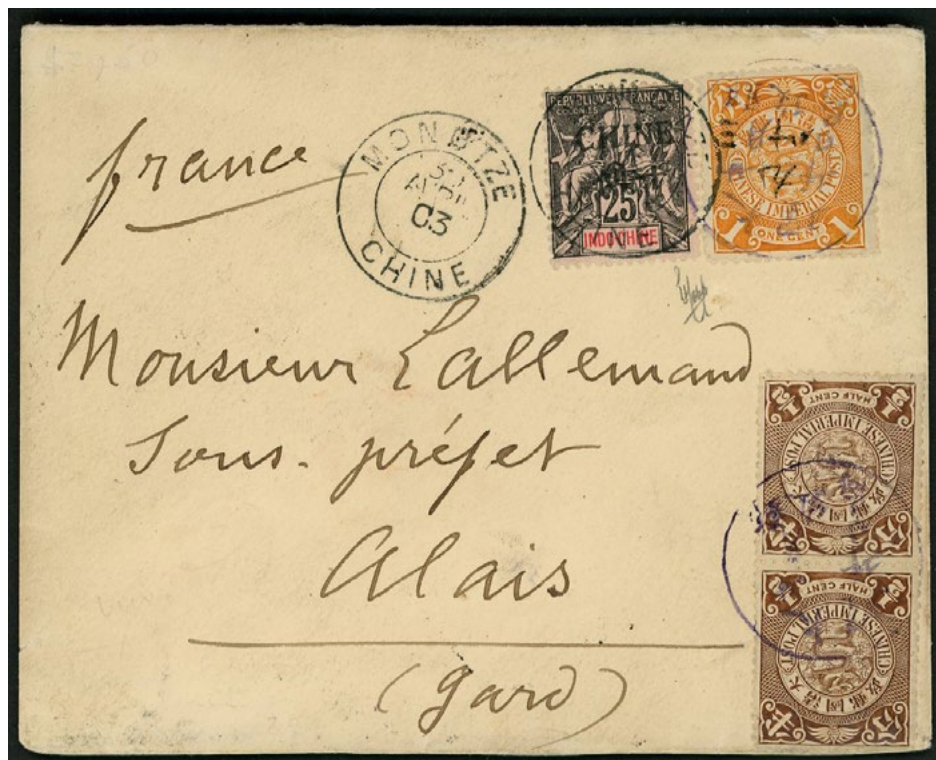 france
MONGTZE
03
CHINE
REPUBLIQUE FRANÇAISE
CHINE
25
INDO-CHINE
CHINESE IMPERIAL POST
1 ONE CENT 1
Monsieur Lallemand
Sous-préfet
Alais
(Gard)
1/2 HALF CENT 1/2
CHINESE IMPERIAL POST
大清國郵政
半 分
1/2 HALF CENT 1/2
CHINESE IMPERIAL POST
大清國郵政
半 分